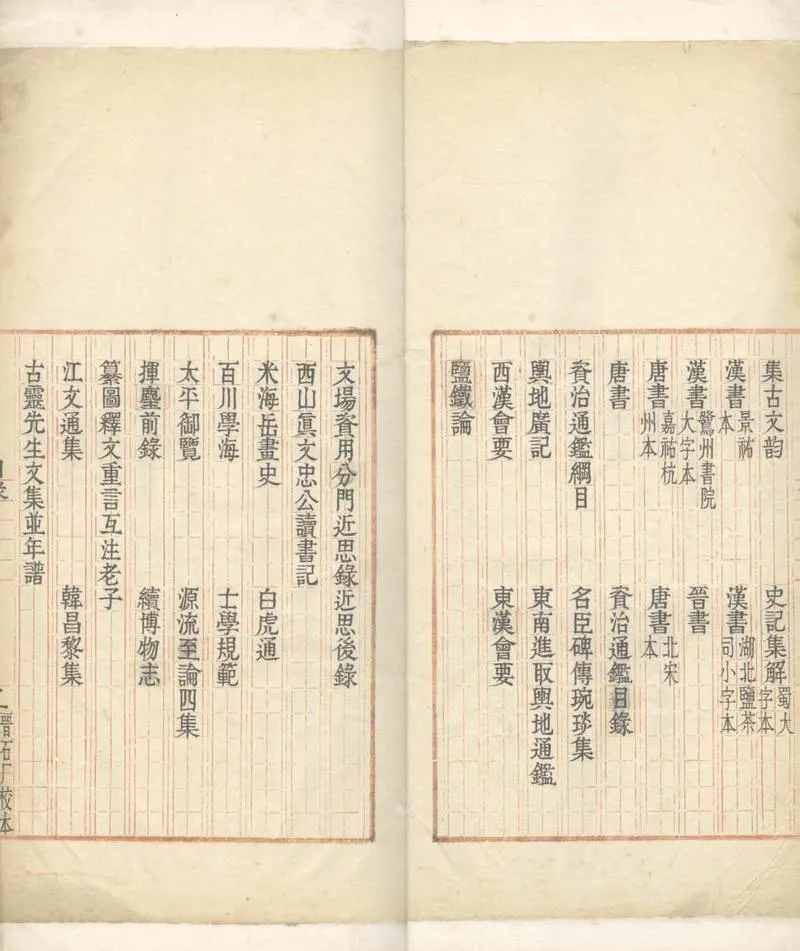 集古文韵 史記集解蜀大字本
漢書景祐本 漢書湖北鹽茶司小字本
漢書鷺州書院大字本 晉書
唐書嘉祐杭州本 唐書北宋本
唐書 資治通鑑目錄
資治通鑑綱目 名臣碑傳琬琰集
輿地廣記 東南進取輿地通鑑
西漢會要 東漢會要
鹽鐵論
文場資用分門近思錄近思後錄
西山眞文忠公讀書記
米海岳畫史 白虎通
百川學海 士學規範
太平御覽 源流至論四集
揮麈前錄 續博物志
纂圖釋文重言互注老子
江文通集 韓昌黎集
古靈先生文集並年譜